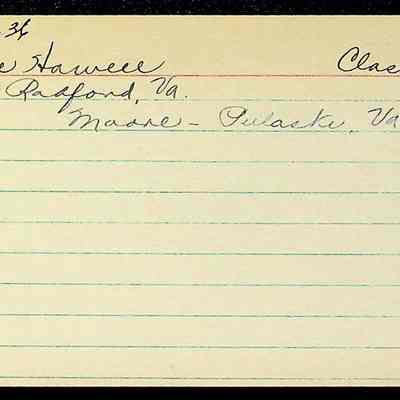 36
e Harvell Clas
Radford, Va.
Moore - Pulaski, Va